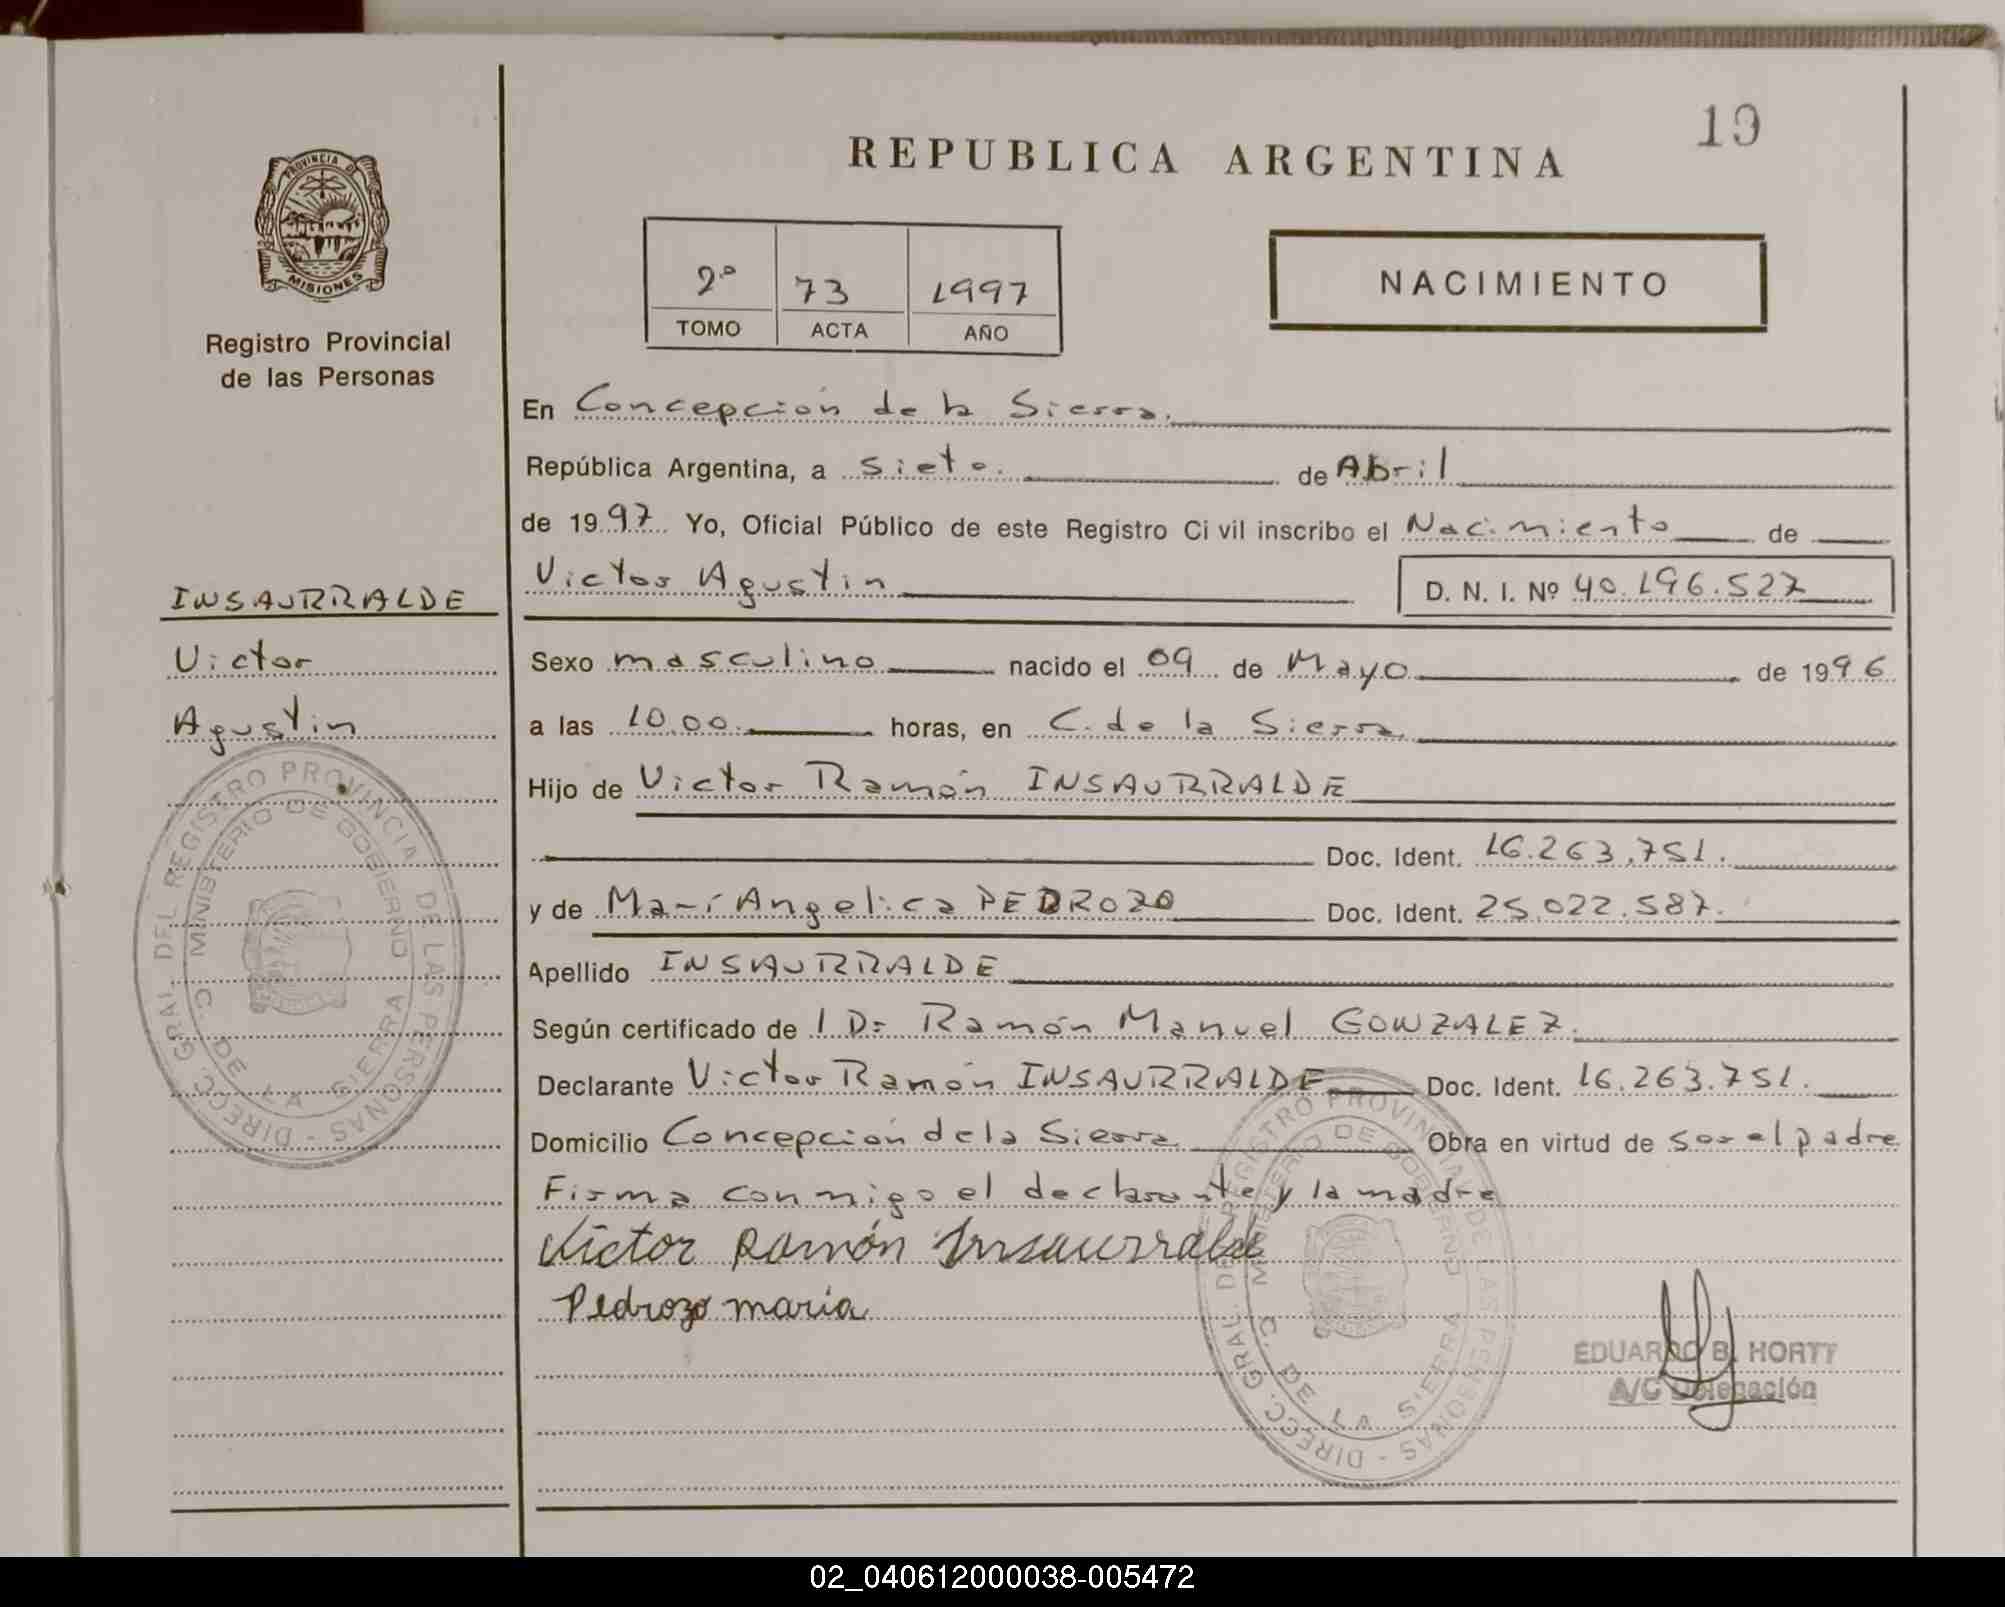 19
REPUBLICA ARGENTINA
PROVINCIA DE MISIONES
Registro Provincial
de las Personas
2º 73 1997
TOMO ACTA AÑO
NACIMIENTO
En Concepción de la Sierra.
República Argentina, a siete. de Abril
de 1997 Yo, Oficial Público de este Registro Civil inscribo el Nacimiento de
Victor Agustin D. N. I. Nº 40.196.527
INSAURRALDE
Victor
Agustin
Sexo masculino nacido el 09 de Mayo de 1996
a las 10.00. horas, en C. de la Sierra.
Hijo de Victor Ramón INSAURRALDE
Doc. Ident. 16.263.751.
y de Marí Angelica PEDROZO Doc. Ident. 25.022.587.
Apellido INSAURRALDE
Según certificado de l Dr Ramón Manuel GONZALEZ.
Declarante Victor Ramón INSAURRALDE Doc. Ident. 16.263.751.
Domicilio Concepción de la Sierra Obra en virtud de ser el padre
Firma conmigo el declarante y la madre
Victor Ramón Insaurralde
Pedrozo maria
DIRECC. GRAL. DEL REGISTRO PROVINCIAL DE LAS PERSONAS -
MINISTERIO DE GOBIERNO
C. DE LA SIERRA
DIRECC. GRAL. DEL REGISTRO PROVINCIAL DE LAS PERSONAS -
MINISTERIO DE GOBIERNO
C. DE LA SIERRA
EDUARDO B. HORTT
A/C Delegación
02_040612000038-005472